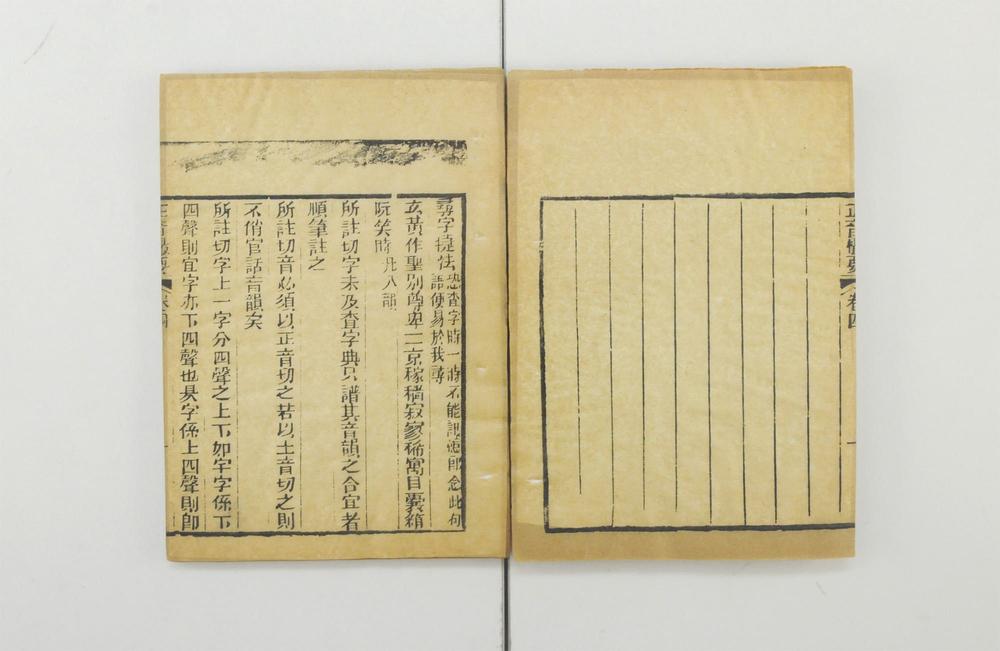 正音撮要 卷四
尋字捷法
恐查字時一時不能記憶即念此句
語便易於我尋
玄黃作聖別尊卑二京稼穡寂寥稀寓目囊箱
阮笑時 廿八韻
所註切字未及查字典只譜其音韻之合宜者
順筆註之
所註切音必須以正音切之若以土音切之則
不俏官話音韻矣
所註切字上一字分四聲之上下如宇字係下
四聲則宜字亦下四聲也具字係上四聲則即
正音撮要 卷四